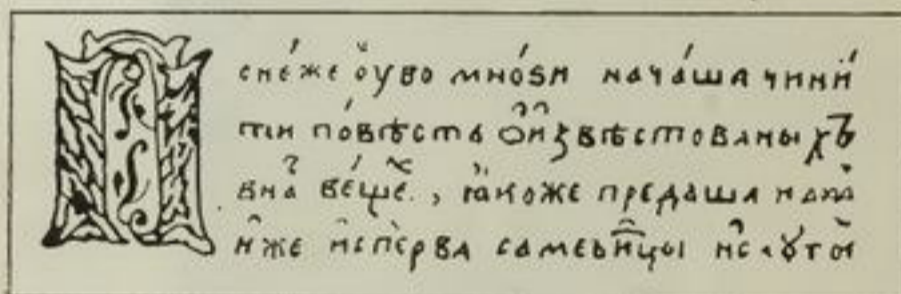 Понеже оуво мноѕи начаша чини
ти повѣсть ѡ и҆звѣстованыхъ
в на веще., ꙗкоже предаша намъ
иже исперва самовици и слꙋги